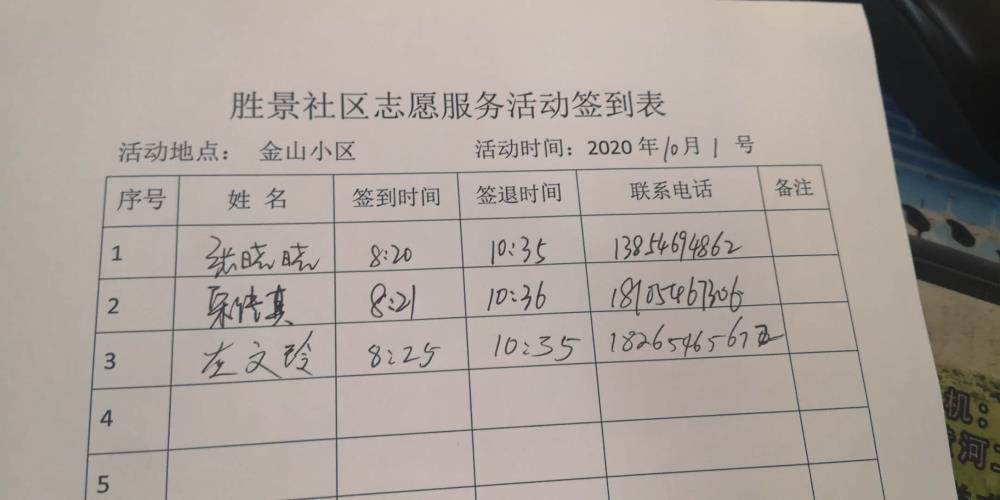 胜景社区志愿服务活动签到表
活动地点： 金山小区 活动时间：2020年10月1号
序号 姓名 签到时间 签退时间 联系电话 备注
1 张晓晓 8:20 10:35 13854694862
2 8:21 10:36 18105467306
3 左文玲 8:25 10:35
4
5
机：
河